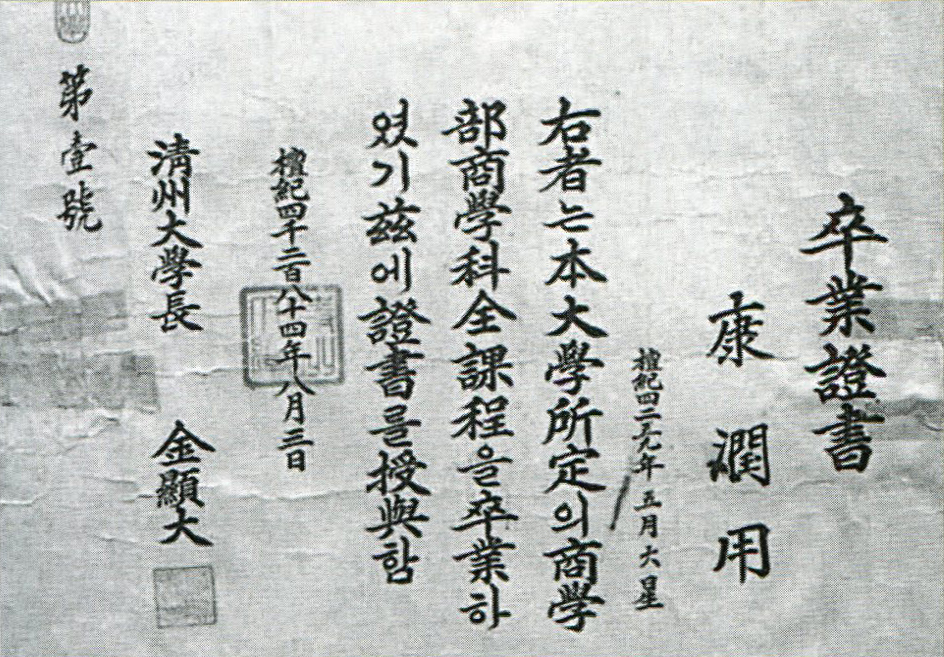 卒業證書
康 潤 用
檀紀四二五九年 五月六日生
右者는本大學所定의商學
部商學科全課程을卒業하
였기玆에證書를授與함
檀紀四千二百八十四年八月三日
淸州大學長 金顯大
第壹號